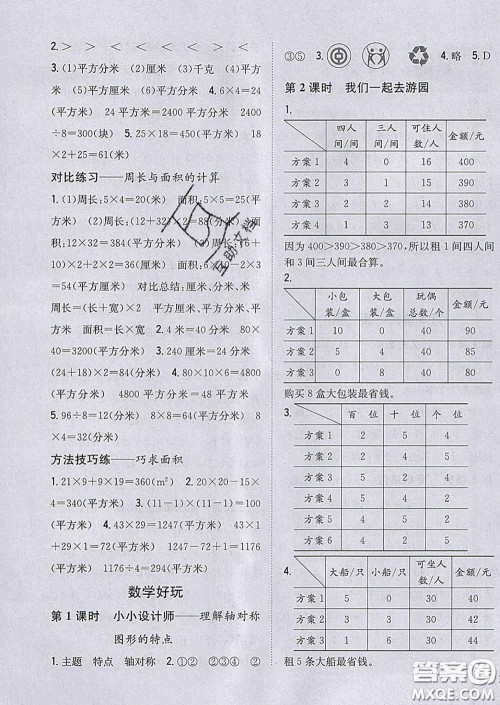 2. > > < > < >
3. (1)平方分米 (2)厘米 (3)千克 (4)平方
米 (5)平方厘米 (6)平方米 4. 6×4=24
(平方米) 24平方米=2400平方分米 2400
÷8=300(块) 5. 25×18=450(平方米)
18×2+25=61(米)
对比练习——周长与面积的计算
1. (1)周长:5×4=20(米) 面积:5×5=25(平
方米)
÷8=32(平方分米) 对比总结:正方形:
形:周长=(长+宽)×2 正方形:周长=边
长 面积=长×宽 2. 4米=40分米 40×
80=3200(平方分米) 3. 240厘米=24分米
(24+18)×2=84(分米) 4. 80×60=
4800(平方分米) 4800平方分米=48平方米
5. 96÷8=12(分米) 32÷4=8(分米) 8
×4=32(平方分米)
方法技巧练——巧求面积
1. 21×9+9×19=360(m²) 2. 20×20-15×
4=340(平方米) 3. (11-1)×(11-1)=100
(平方米) 4. 43×29=1247(平方米) 43×1
+29×1=72(平方米) 1247-72+1=1176
(平方米) 1176÷2=588(平方米)
数学好玩
第1课时 小小设计师——理解轴对称
图形的特点
1. 主题 特点 轴对称 2. ①② ②③④ ②
③⑤ 3. 4. 略 5. D
第2课时 我们一起去游园
1.
四人间/间 三人间/间 可住人数/人 金额/元
方案1 4 0 16 400
方案2 3 1 15 390
方案3 2 2 14 380
方案4 1 3 13 370
因为400>390>380>370,所以租1间四人间
和3间三人间最合算。
2.
小包装/盒 大包装/盒 玩偶总数/个 金额/元
方案1 10 0 40 90
方案2 5 4 40 85
方案3 0 8 40 80
购买8盒大包装最省钱。
3.
百位 十位 个位
方案1 2 5 4
方案2 2 4 5
方案3 5 2 4
方案4 5 4 2
方案5 4 2 5
方案6 4 5 2
4.
大船/只 小船/只 可坐人数/人 金额/元
方案1 5 0 30 40
方案2 3 3 30 42
方案3 1 6 30 44
租5条大船最省钱。
互助文档
答案圈
MXQE.COM